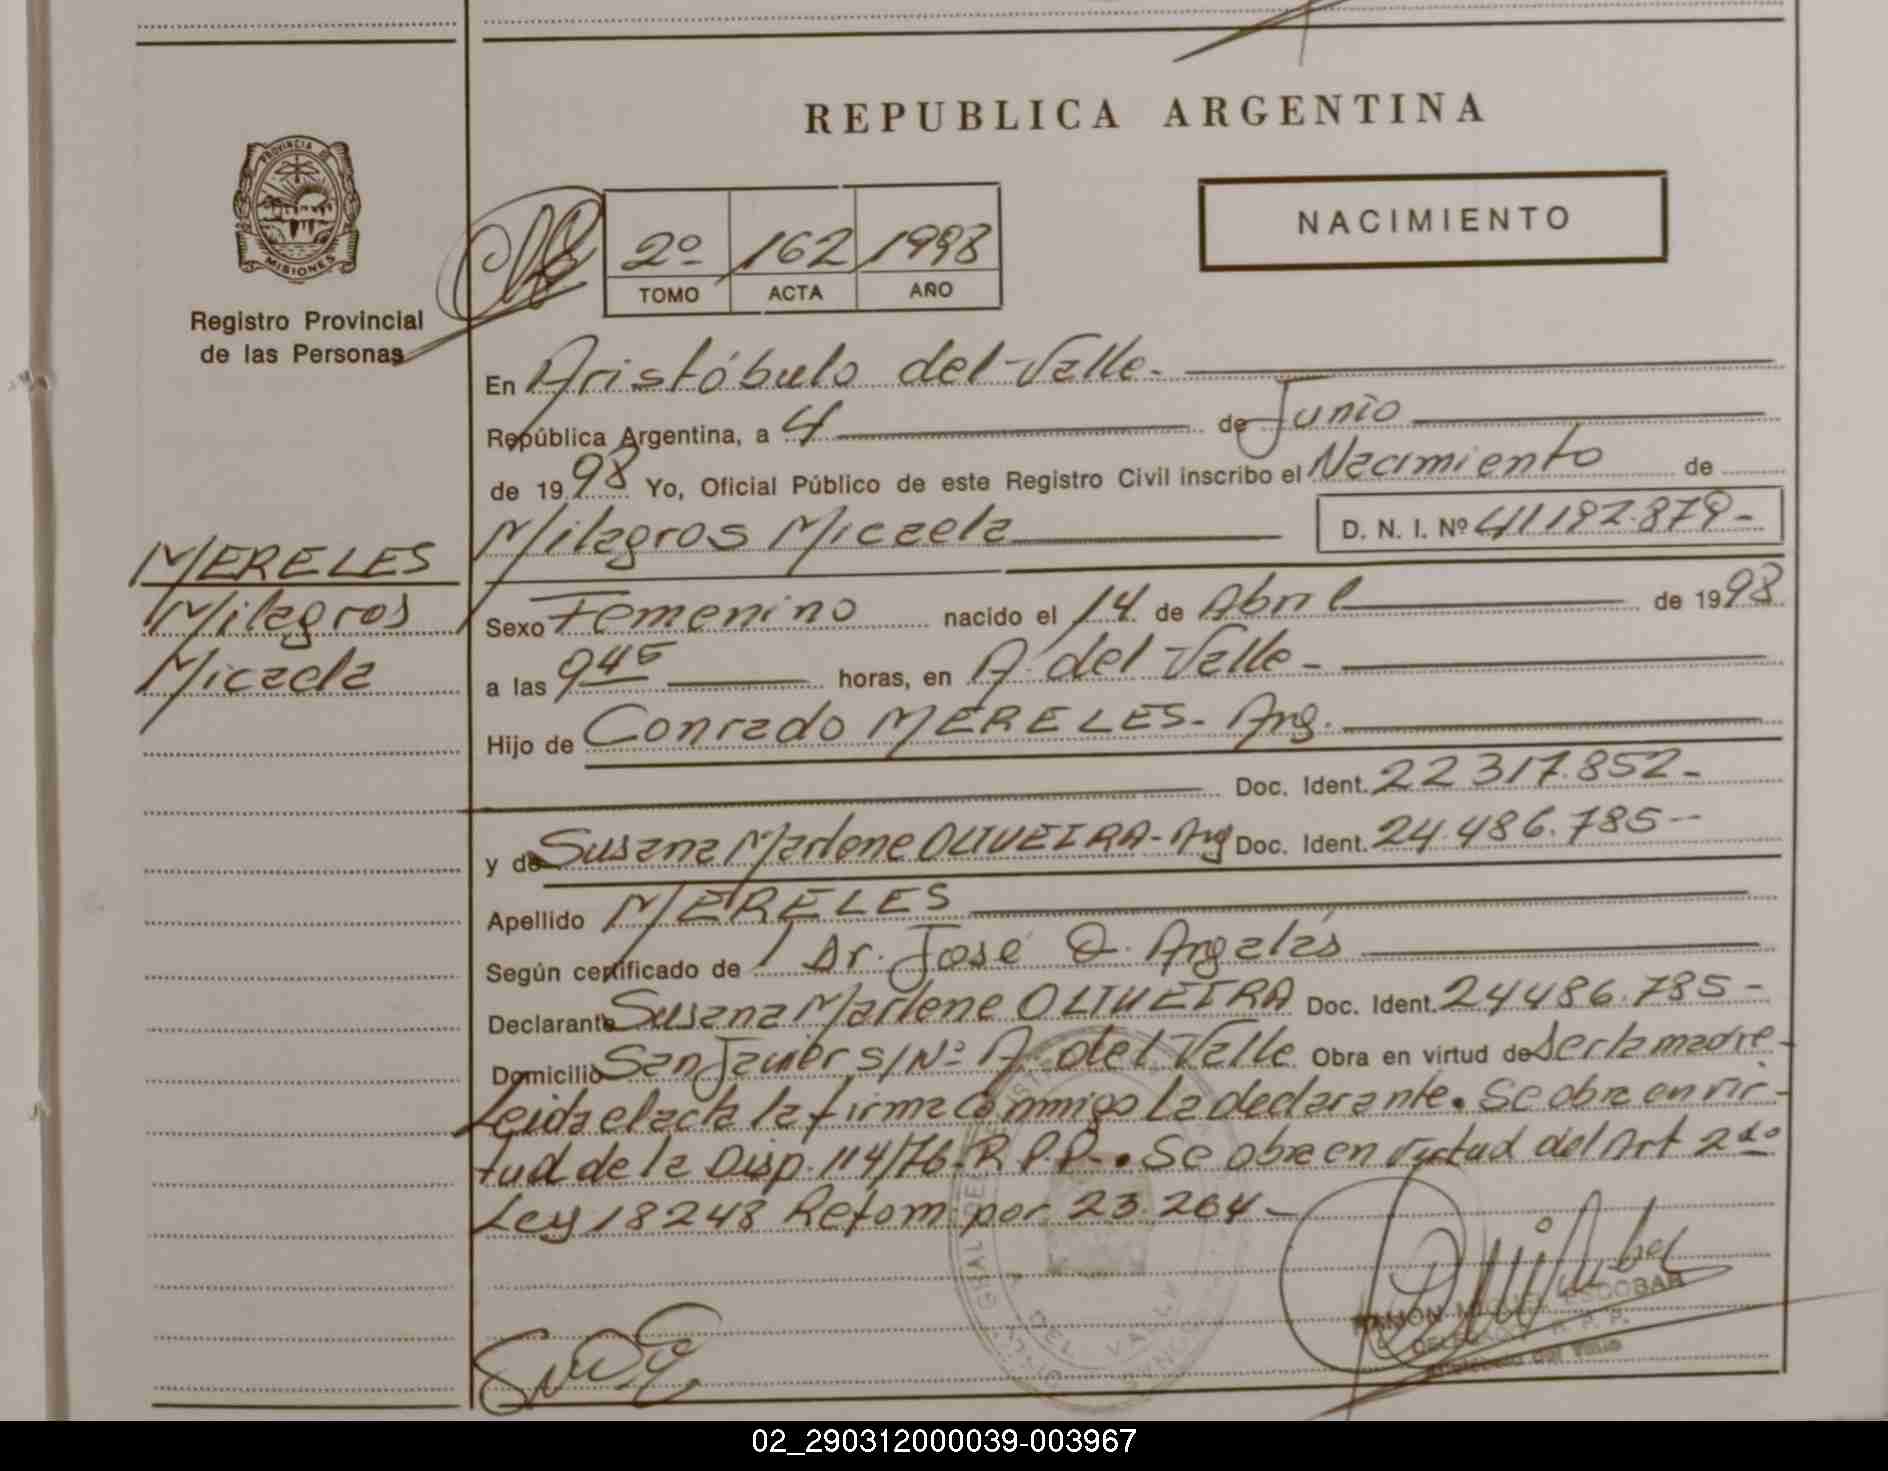 REPUBLICA ARGENTINA
PROVINCIA DE
MISIONES
Registro Provincial
de las Personas
2º 162 1998
TOMO ACTA AÑO
NACIMIENTO
En Aristóbulo del Valle.
República Argentina, a 4 de Junio
de 1998 Yo, Oficial Público de este Registro Civil inscribo el Nacimiento de
Milagros Micaela D. N. I. Nº 41192.879-
MERELES
Milagros
Micaela
Sexo Femenino nacido el 14 de Abril de 1998
a las 9 45 horas, en A. del Valle-
Hijo de Conrado MERELES- Arg.
Doc. Ident. 22317.852-
y de Susana Marlene OLIVEIRA- Arg Doc. Ident. 24.486.785--
Apellido MERELES
Según certificado de Dr. José O. Angelás
Declarante Susana Marlene OLIVEIRA Doc. Ident. 24486.785-
Domicilio San Javier s/Nº A. del Valle Obra en virtud de ser la madre-
Leida el acta la firma conmigo la declarante. Se obra en vir-
tud de la Disp. 114/76-R.P.P-. Se obra en virtud del Art 2do
Ley 18248 Reform por 23.264-
DEL VALLE
RAMON MIGUEL ESCOBAR
DELEGADO R. P. P.
Aristóbulo del Valle
02_290312000039-003967